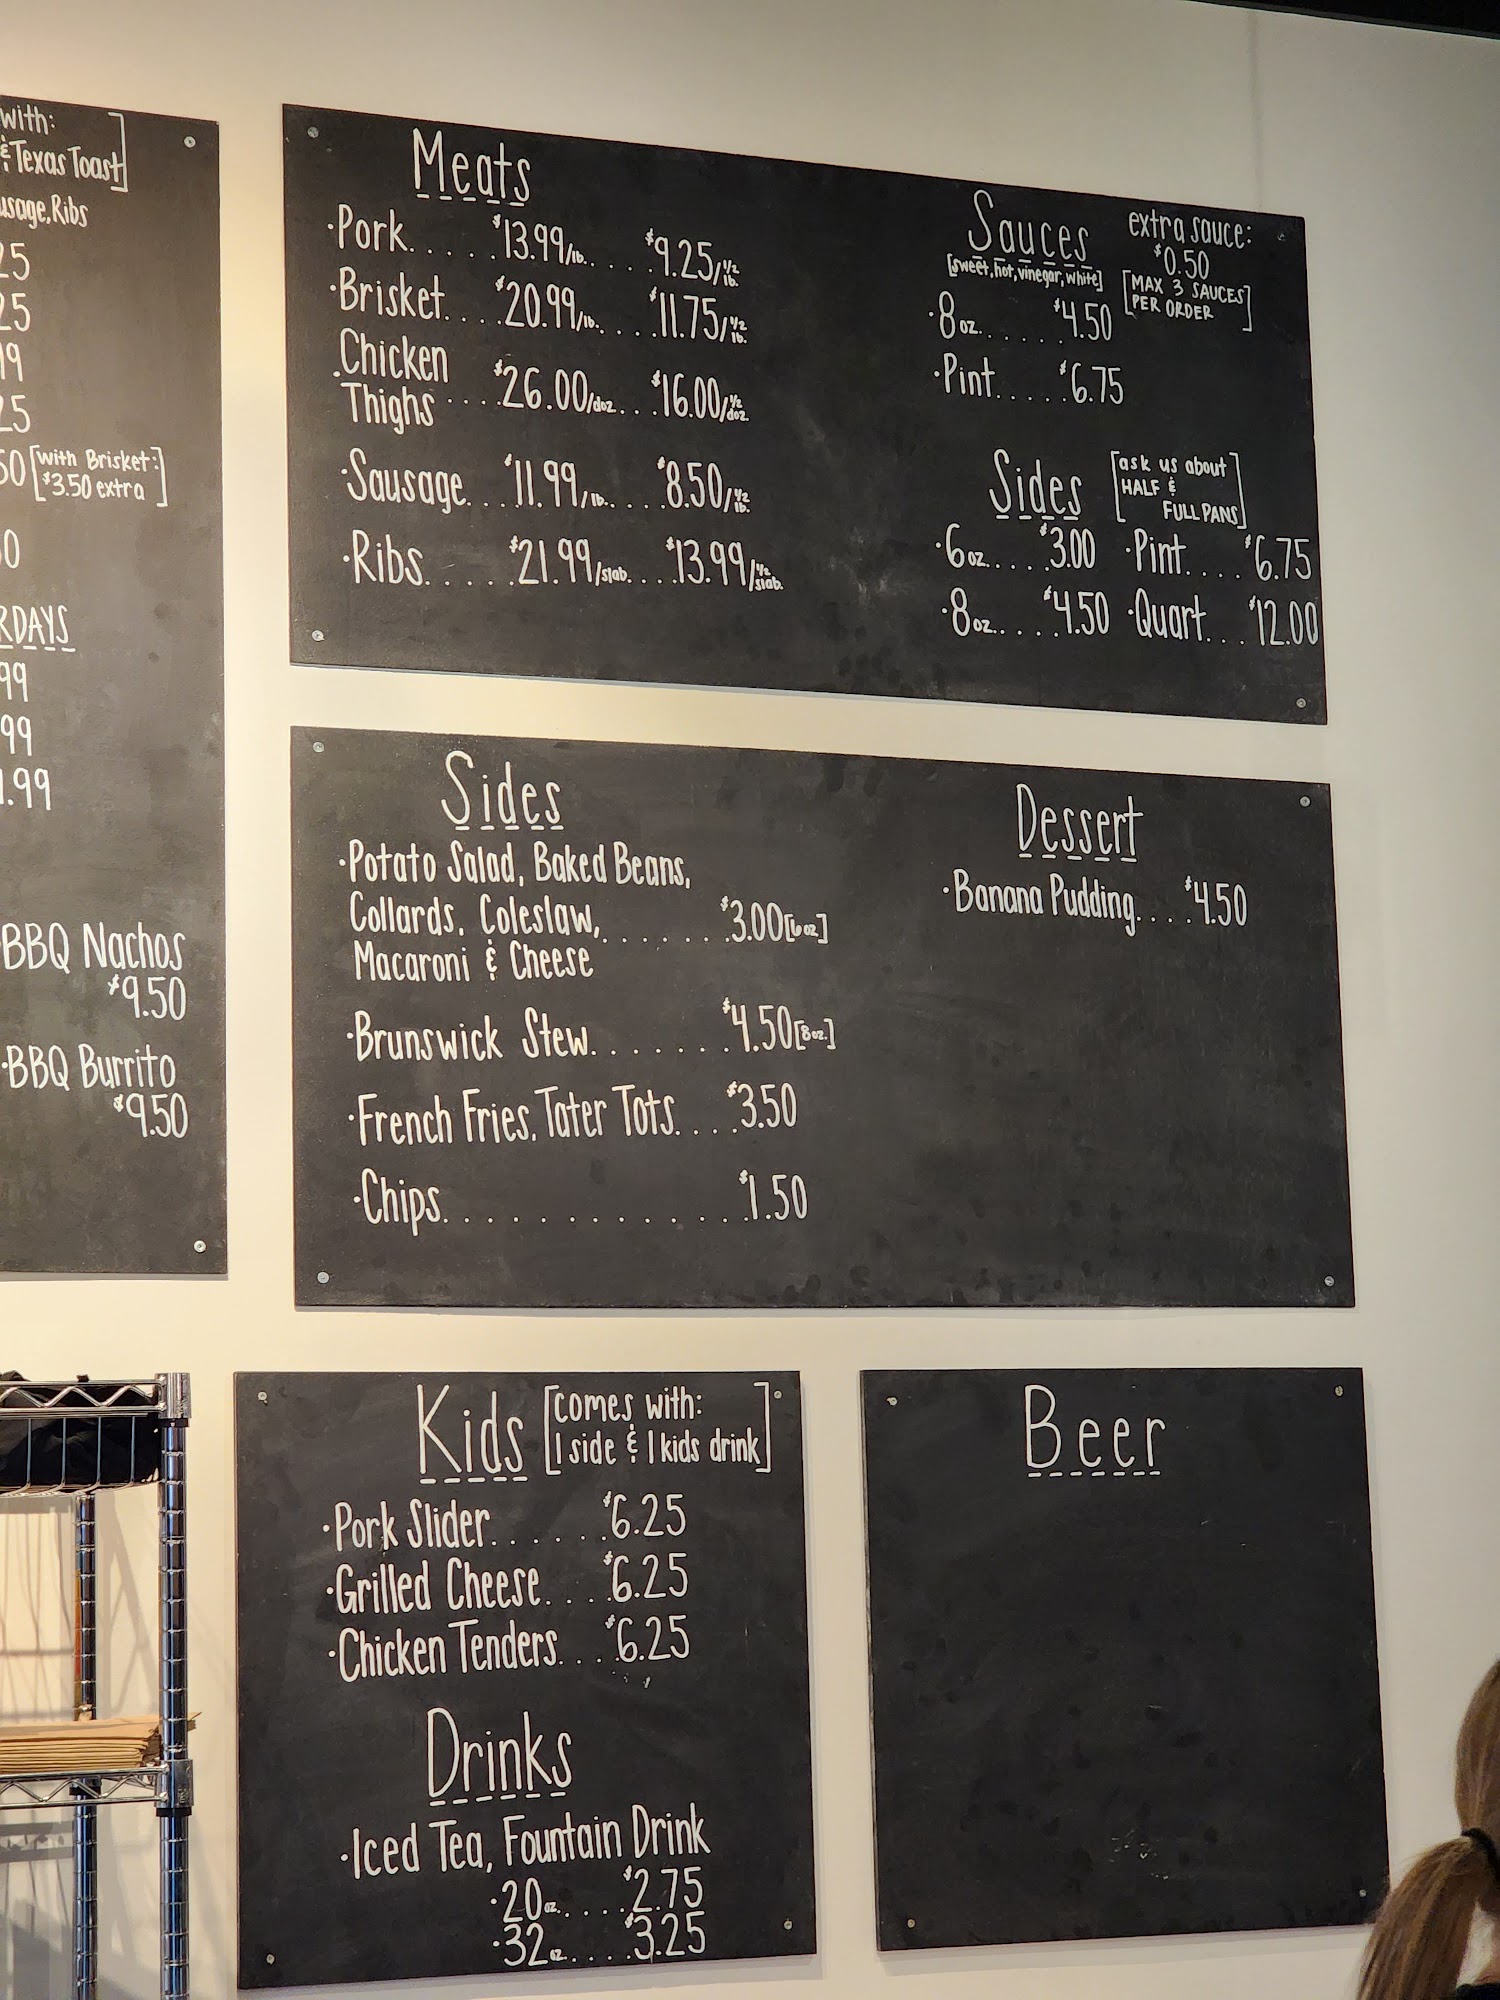 with:
& Texas Toast]
Ribs
25
25
25
[with Brisket:
$3.50 extra]
99
99
.99
BBQ Nachos
$9.50
·BBQ Burrito
$9.50
Meats
·Pork..... $13.99/lb..... $9.25/½ lb.
·Brisket.... $20.99/lb..... $11.75/½ lb.
·Chicken
Thighs .... $26.00/doz... $16.00/½ doz.
·Sausage... $11.99/lb..... $8.50/½ lb.
·Ribs...... $21.99/slab.... $13.99/½ slab.
Sauces
[sweet, hot, vinegar, white]
extra sauce:
$0.50
[MAX 3 SAUCES
PER ORDER]
·8oz...... $4.50
·Pint..... $6.75
Sides
[ask us about
HALF &
FULL PANS]
·6oz..... $3.00 ·Pint.... $6.75
·8oz..... $4.50 ·Quart... $12.00
Sides
·Potato Salad, Baked Beans,
Collards, Coleslaw,....... $3.00[6oz]
Macaroni & Cheese
·Brunswick Stew....... $4.50[8oz.]
·French Fries, Tater Tots.... $3.50
·Chips.............. $1.50
Dessert
·Banana Pudding.... $4.50
Kids [comes with:
1 side & 1 kids drink]
·Pork Slider...... $6.25
·Grilled Cheese.... $6.25
·Chicken Tenders.... $6.25
Drinks
·Iced Tea, Fountain Drink
·20oz..... $2.75
·32oz..... $3.25
Beer